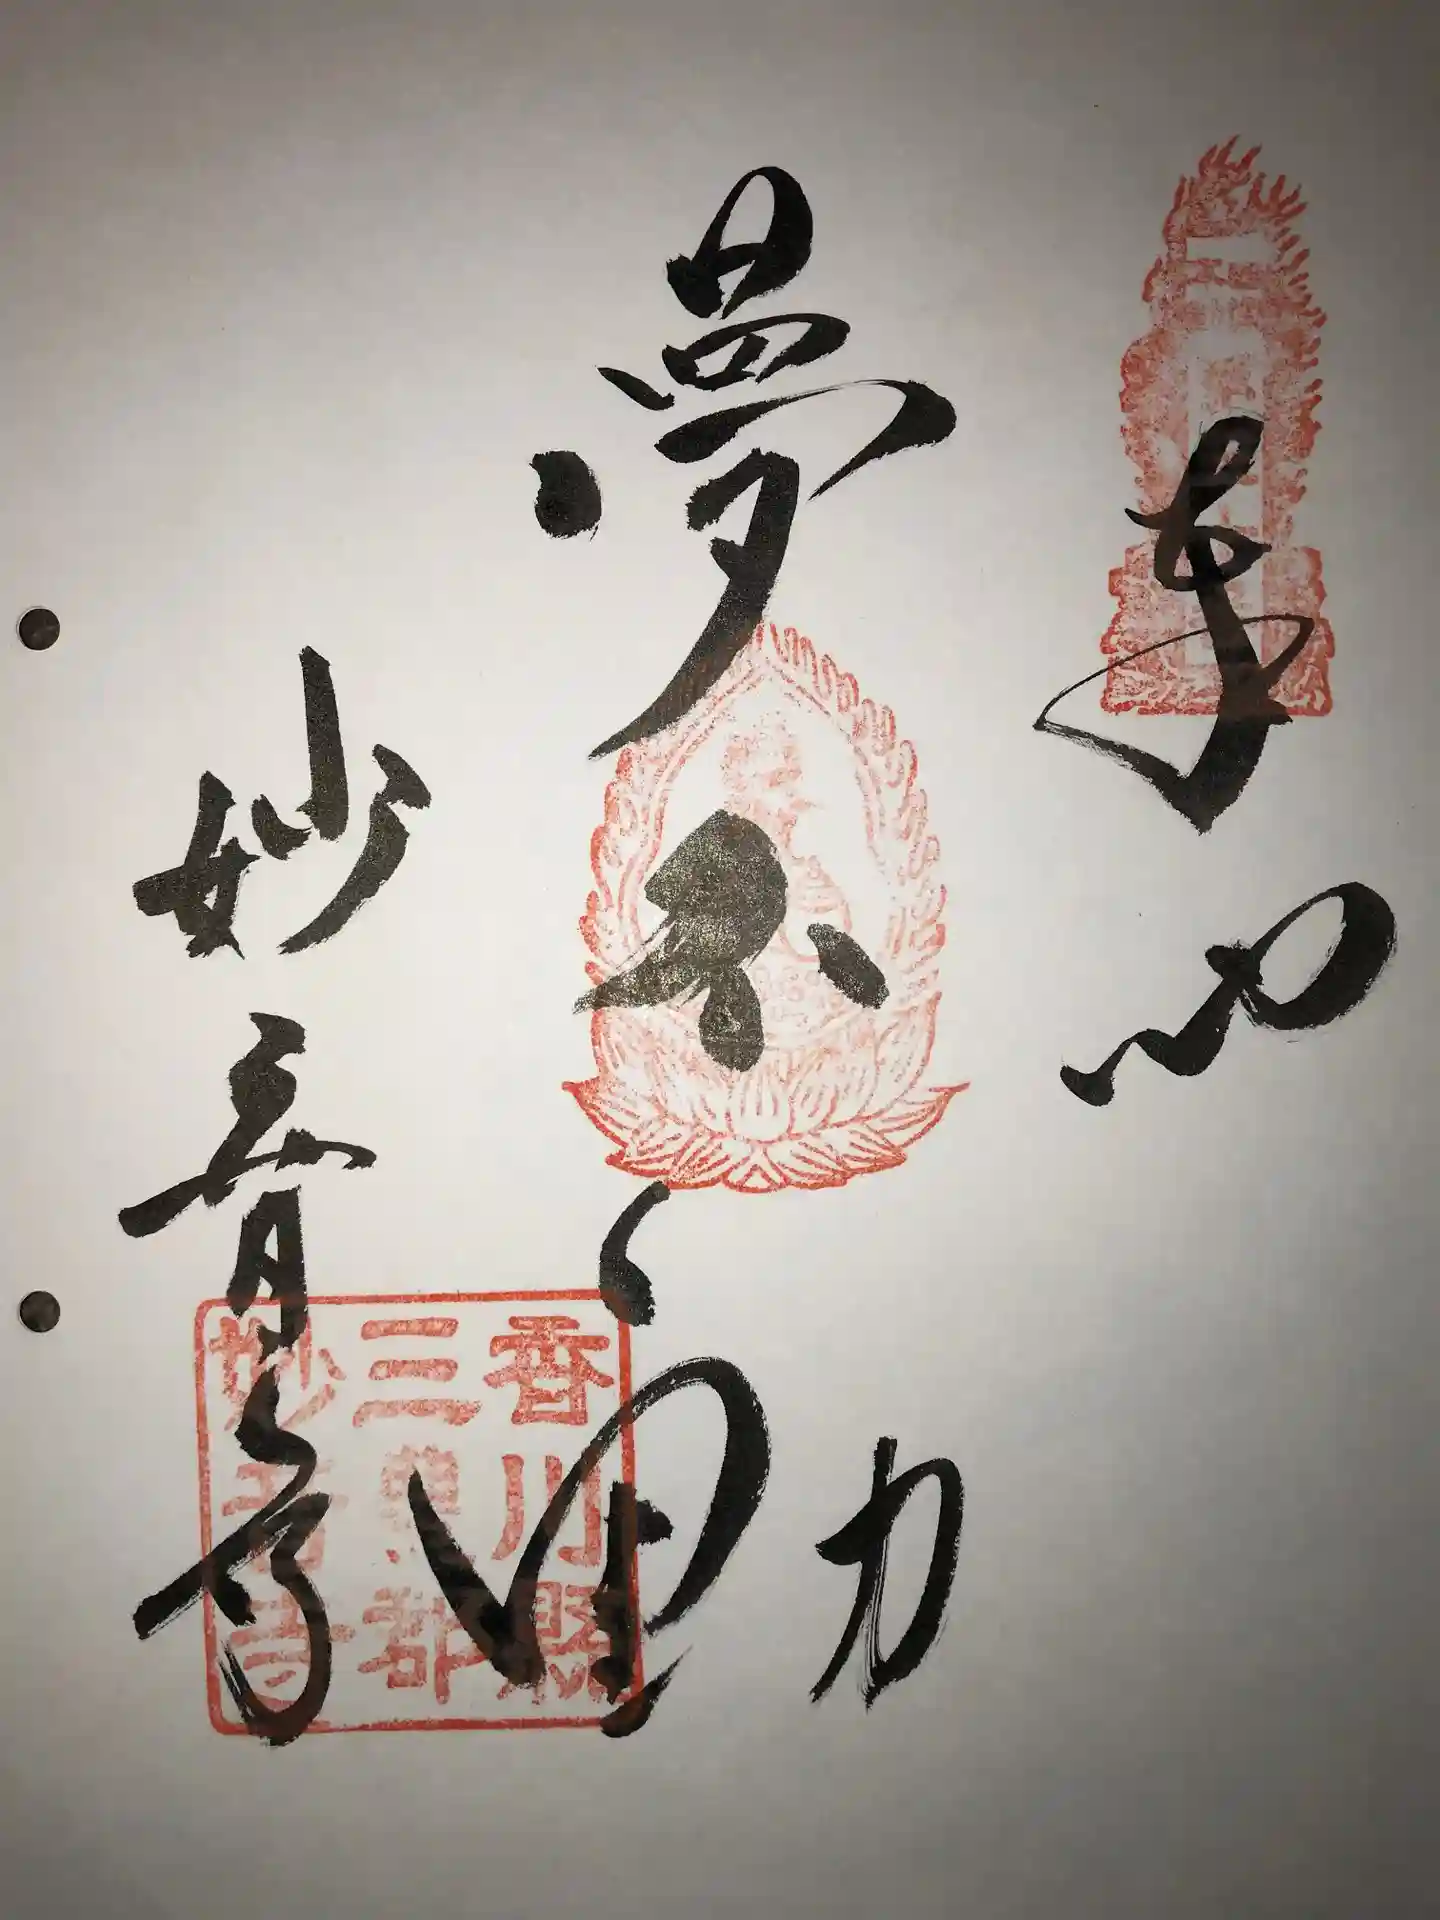 奉拝
夢不動
妙音寺
香川縣
三豊郡
妙音寺